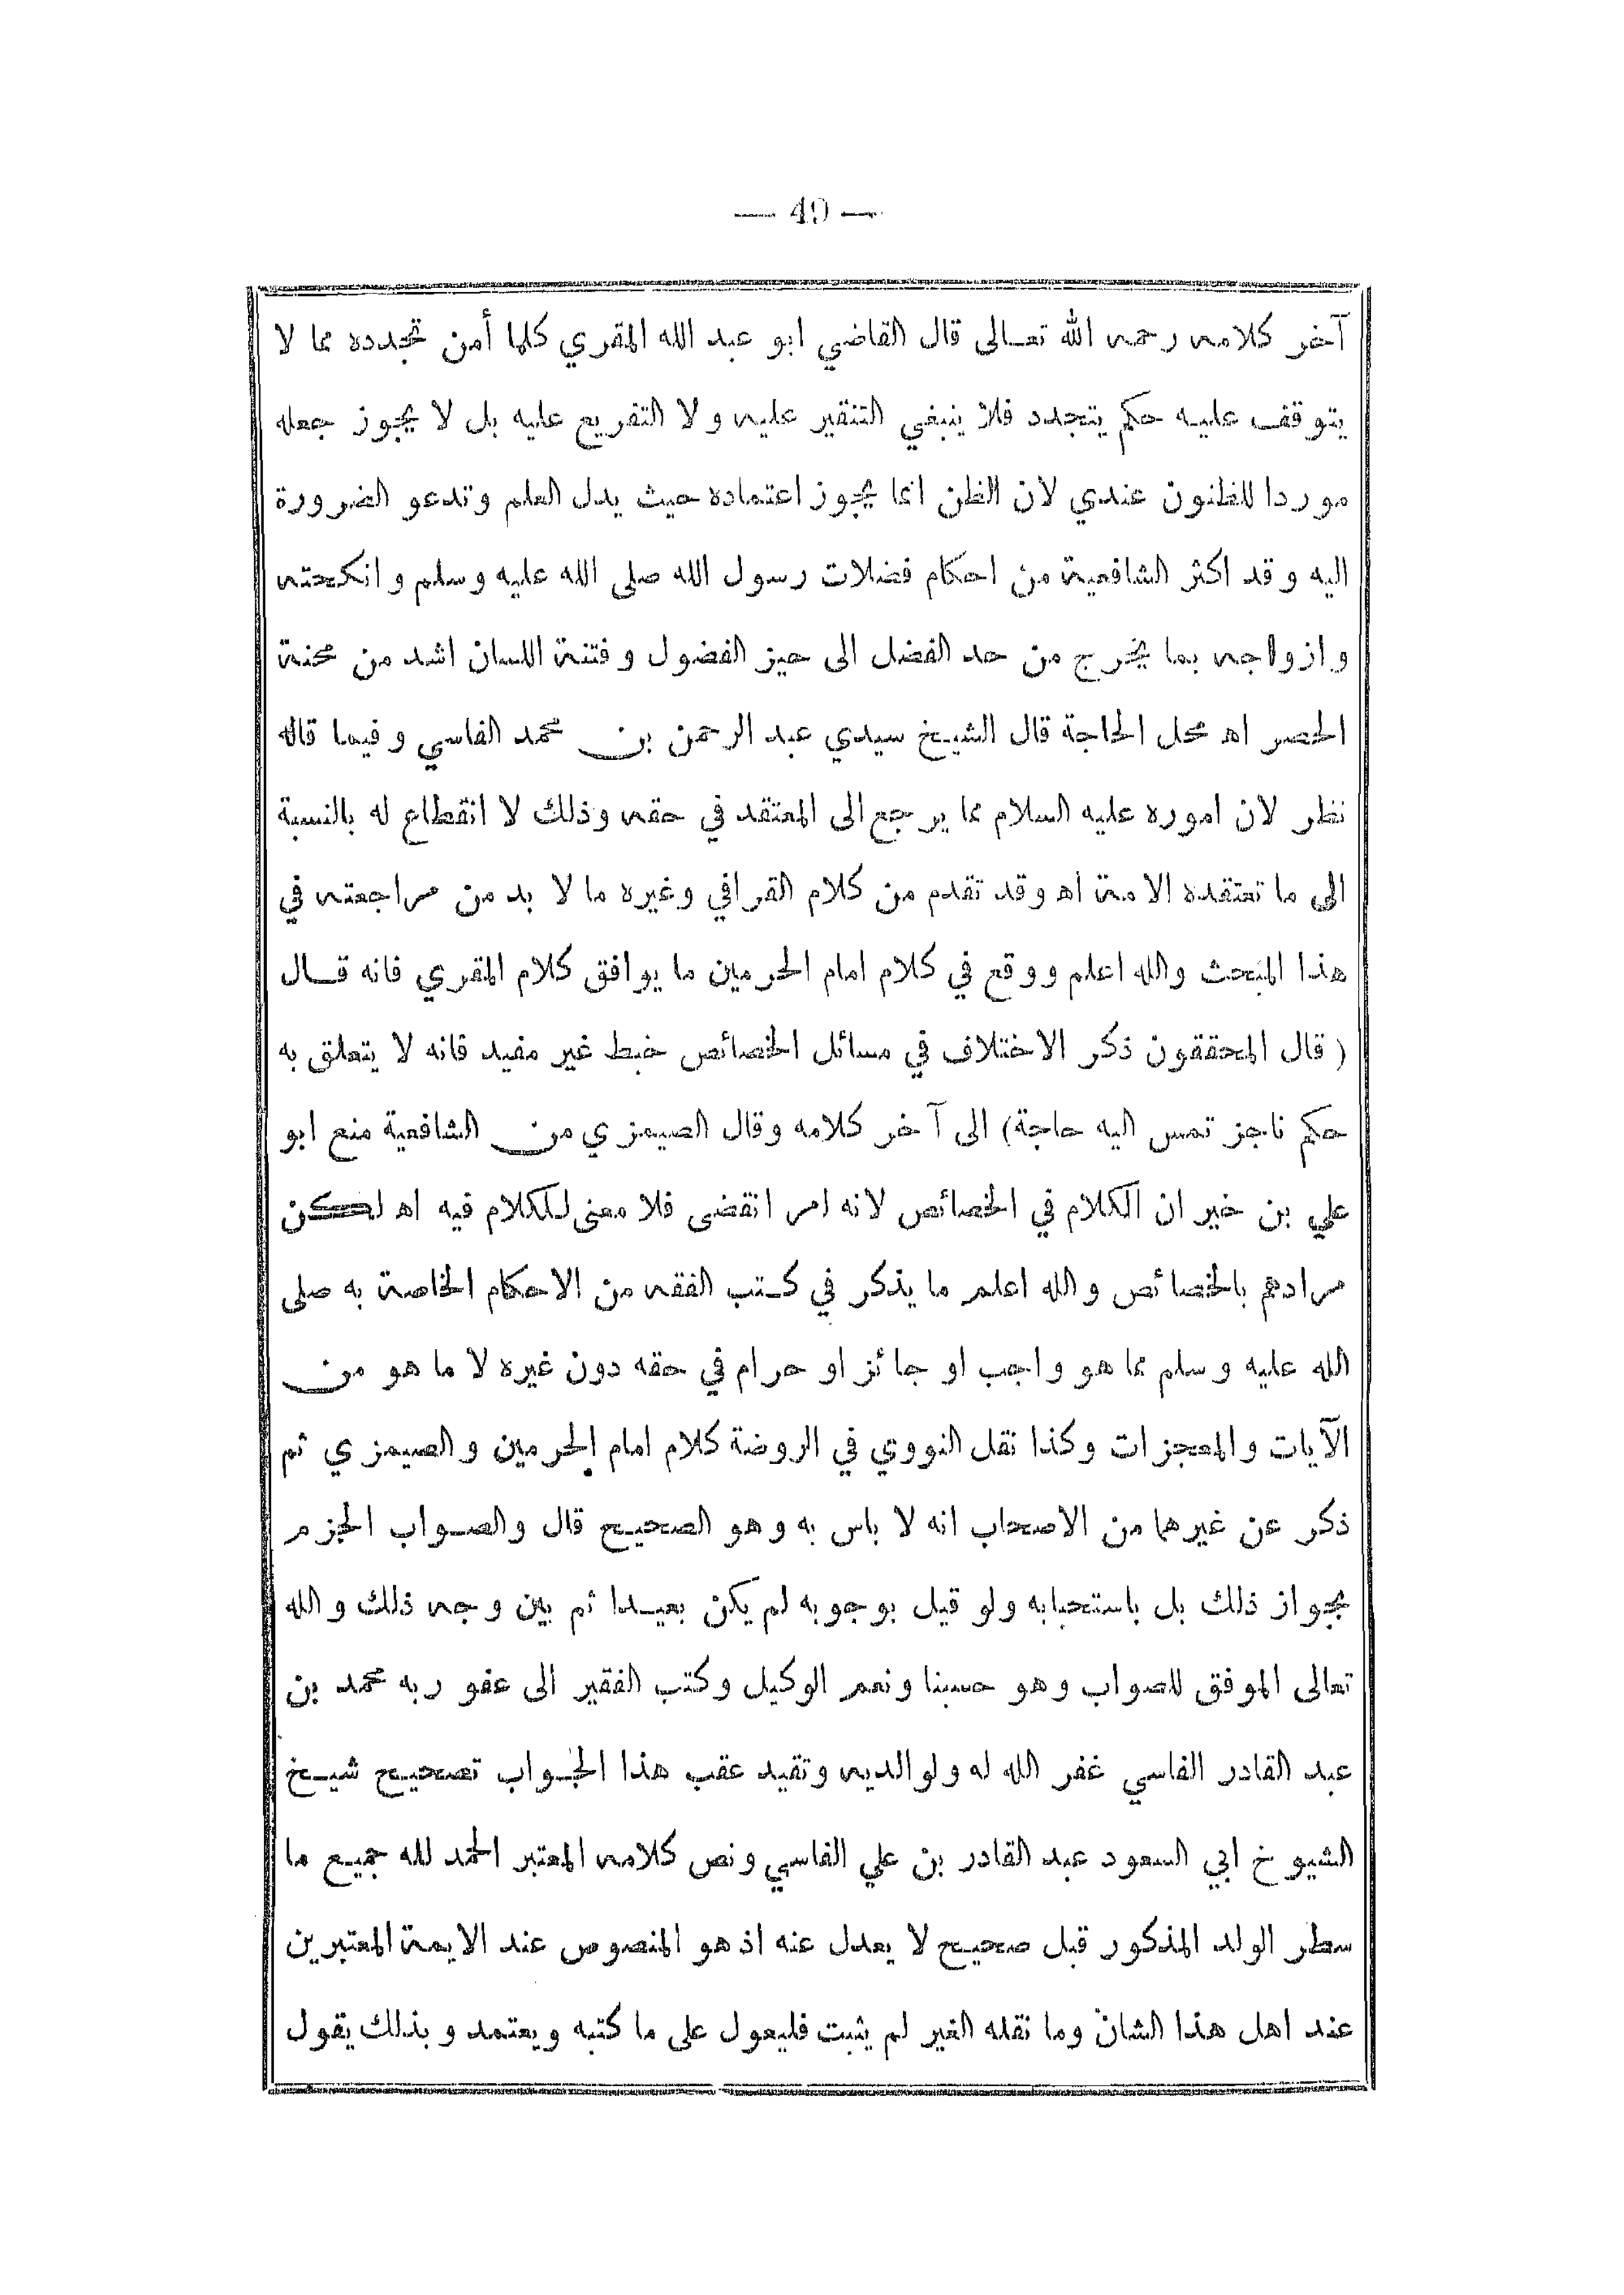 — 49 —
آخر كلامه رحمه الله تعالى قال القاضي ابو عبد الله المقري كلما أمن تجدده مما لا
يتوقف عليه حكم يتجدد فلا ينبغي التنقير عليه ولا التفريع عليه بل لا يجوز جعله
موردا للظنون عندي لان الظن انما يجوز اعتماده حيث يدل العلم وتدعو الضرورة
اليه وقد اكثر الشافعية من احكام فضلات رسول الله صلى الله عليه وسلم وانكحته
وازواجه بما يخرج من حد الفضل الى حيز الفضول وفتنة اللسان اشد من محنة
الحصر اه محل الحاجة قال الشيخ سيدي عبد الرحمن بن محمد الفاسي وفيما قاله
نظر لان اموره عليه السلام مما يرجع الى المعتقد في حقه وذلك لا انقطاع له بالنسبة
الى ما تعتقده الامة اه وقد تقدم من كلام القرافي وغيره ما لا بد من مراجعته في
هذا المبحث والله اعلم ووقع في كلام امام الحرمين ما يوافق كلام المقري فانه قال
( قال المحققون ذكر الاختلاف في مسائل الخصائص خبط غير مفيد فانه لا يتعلق به
حكم ناجز تمس اليه حاجة) الى آخر كلامه وقال الصيمزي من الشافعية منع ابو
علي بن خيران الكلام في الخصائص لانه امر انقضى فلا معنى للكلام فيه اه لكن
مرادهم بالخصائص والله اعلم ما يذكر في كتب الفقه من الاحكام الخاصة به صلى
الله عليه وسلم مما هو واجب او جائز او حرام في حقه دون غيره لا ما هو من
الآيات والمعجزات وكذا نقل النووي في الروضة كلام امام الحرمين والصيمزي ثم
ذكر عن غيرهما من الاصحاب انه لا باس به وهو الصحيح قال والصواب الجزم
بجواز ذلك بل باستحبابه ولو قيل بوجوبه لم يكن بعيدا ثم بين وجه ذلك والله
تعالى الموفق للصواب وهو حسبنا ونعم الوكيل وكتب الفقير الى عفو ربه محمد بن
عبد القادر الفاسي غفر الله له ولوالديه وتقيد عقب هذا الجواب تصحيح شيخ
الشيوخ ابي السعود عبد القادر بن علي الفاسي ونص كلامه المعتبر الحمد لله جميع ما
سطر الولد المذكور قبل صحيح لا يعدل عنه اذ هو المنصوص عند الايمة المعتبرين
عند اهل هذا الشان وما نقله الغير لم يثبت فليعول على ما كتبه ويعتمد وبذلك يقول